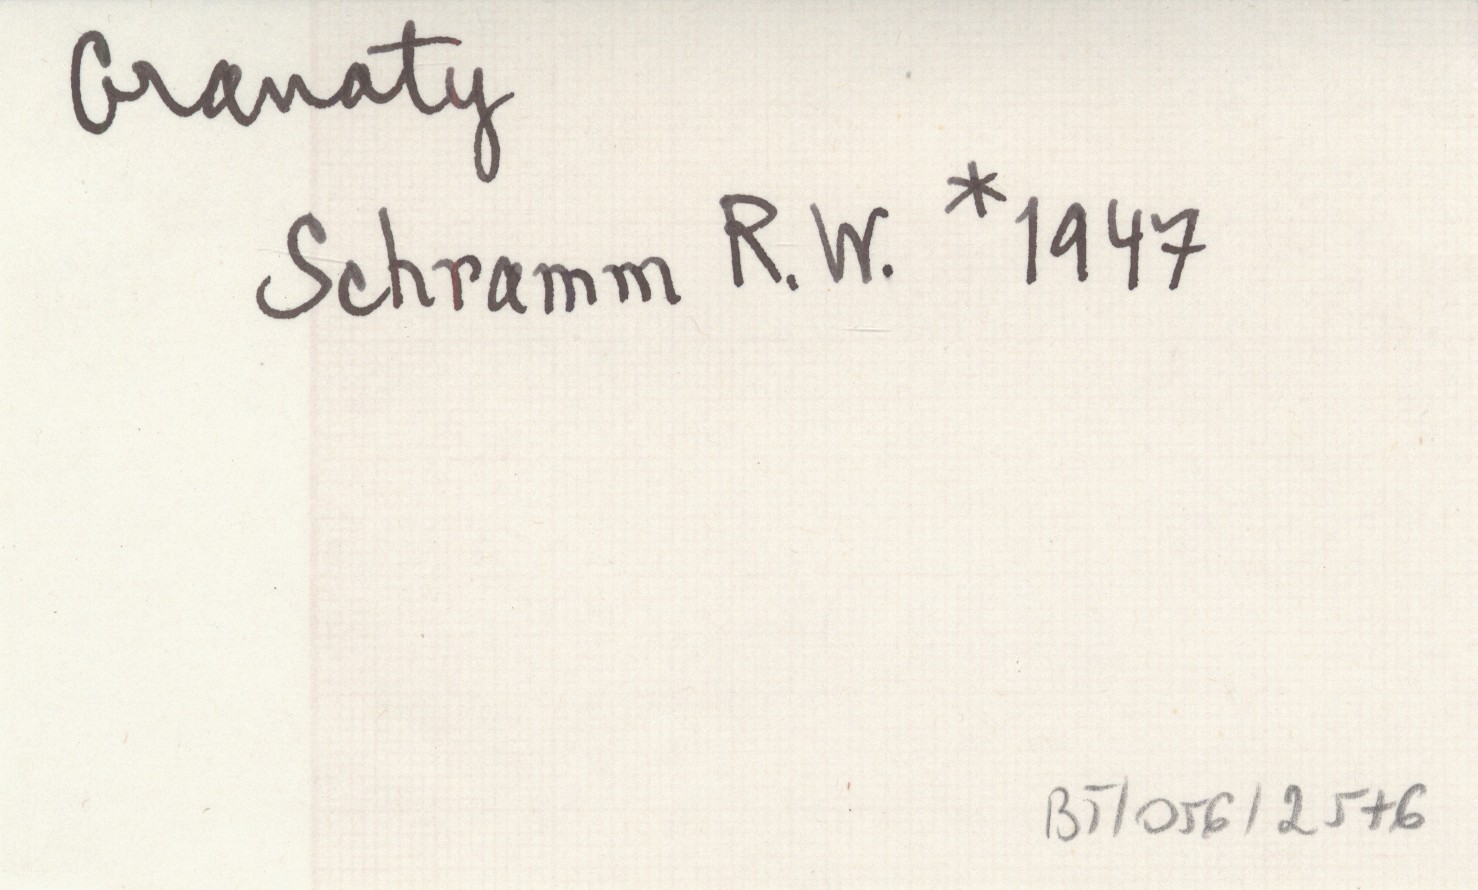 Granaty
Schramm R. W. *1947
BT/056/2576